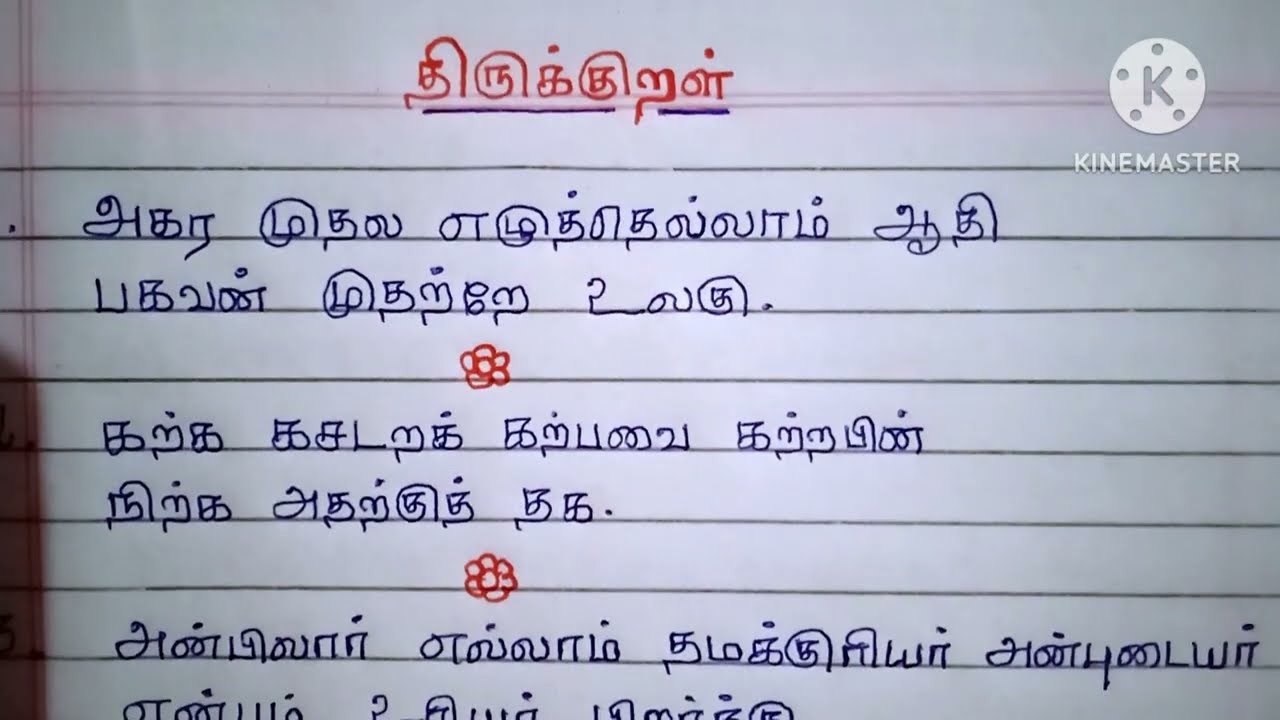 திருக்குறள்
KINEMASTER
. அகர முதல எழுத்தெல்லாம் ஆதி
பகவன் முதற்றே உலகு.
2. கற்க கசடறக் கற்பவை கற்றபின்
நிற்க அதற்குத் தக.
3 அன்பிலார் எல்லாம் தமக்குரியர் அன்புடையர்
என்பும் உரியர் பிறர்க்கு